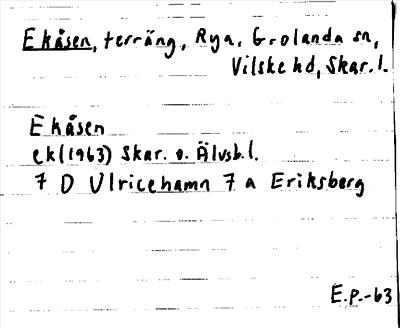 Ekåsen, terräng, Rya, Grolanda sn,
Vilske hd, Skar. l.
Ekåsen
ek (1963) Skar. o. Älvsb. l.
7 D Ulricehamn 7 a Eriksberg
E.p.-63